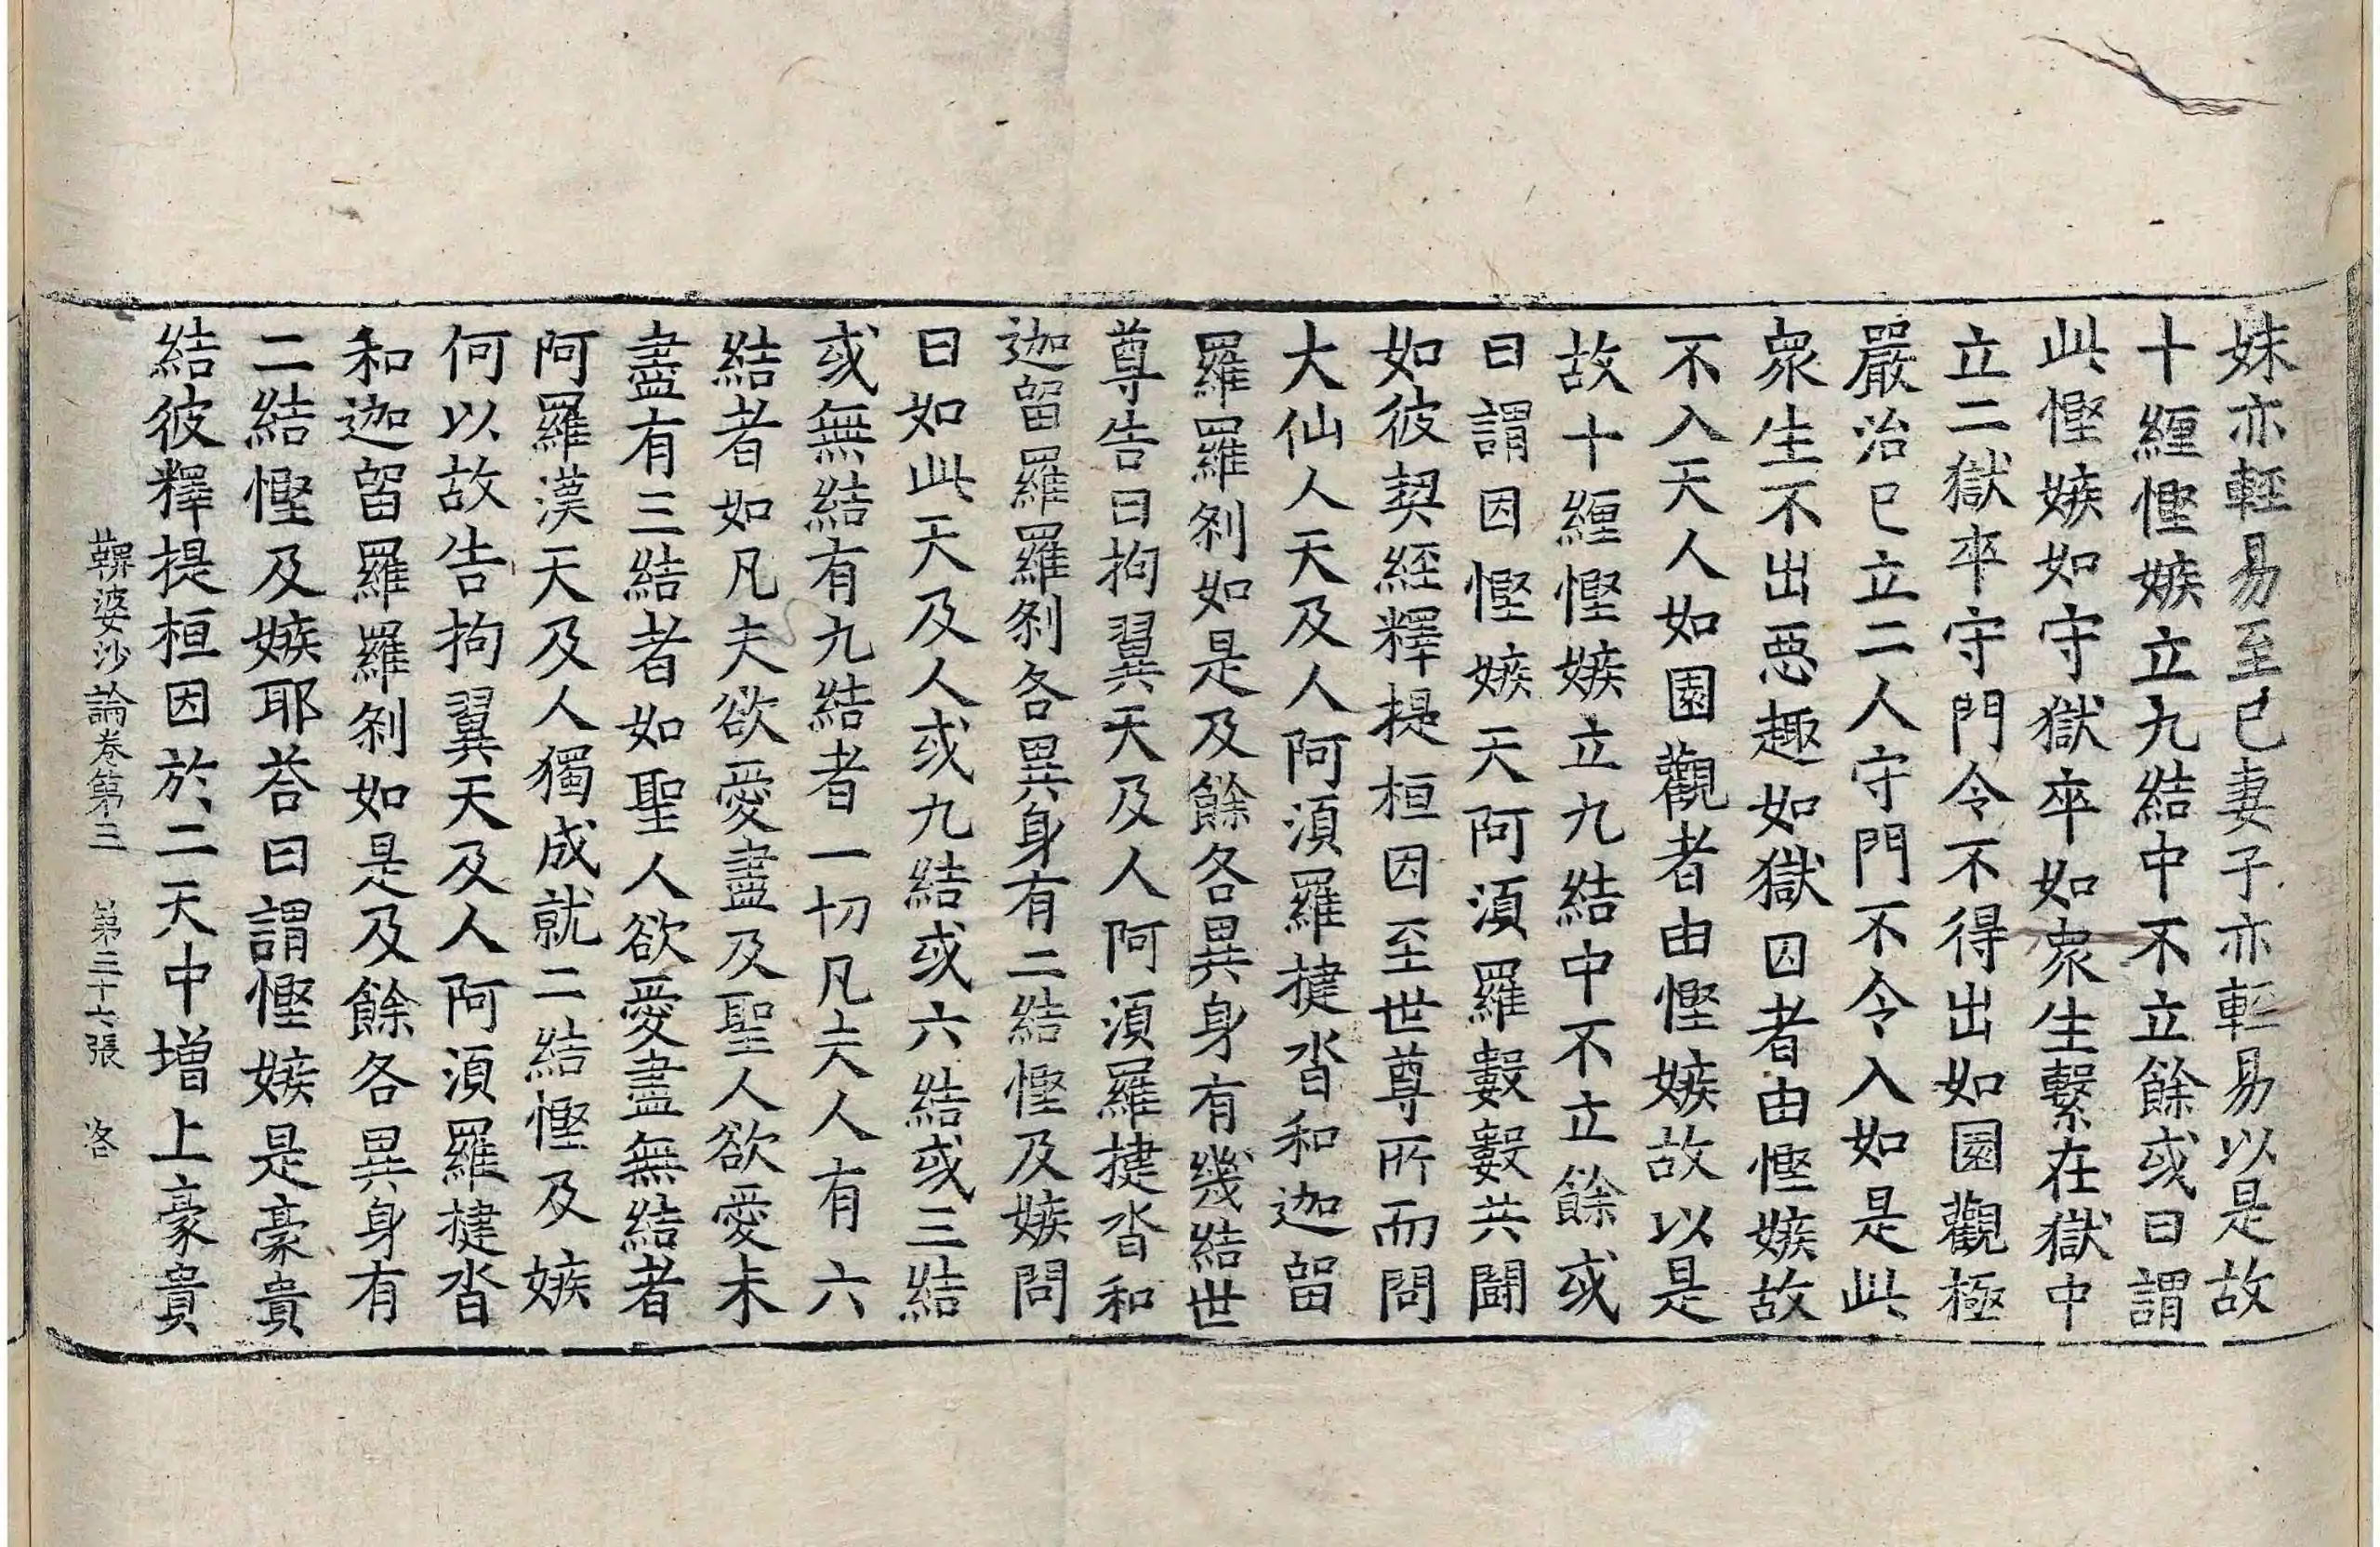 妹亦輕易至已妻子亦輕易以是故
十纒慳嫉立九結中不立餘或曰謂
此慳嫉如守獄卒如衆生繫在獄中
立二獄卒守門令不得出如園觀極
嚴治已立二人守門不令入如是此
衆生不出惡趣如獄囚者由慳嫉故
不入天人如園觀者由慳嫉故以是
故十纒慳嫉立九結中不立餘或
曰謂因慳嫉天阿湏羅數數共鬪
如彼契經釋提桓因至世尊所而問
大仙人天及人阿湏羅揵沓和迦留
羅羅剎如是及餘各異身有幾結世
尊告曰拘翼天及人阿湏羅揵沓和
迦留羅羅剎各異身有二結慳及嫉問
曰如此天及人或九結或六結或三結
或無結有九結者一切凡夫人有六
結者如凡夫欲愛盡及聖人欲愛未
盡有三結者如聖人欲愛盡無結者
阿羅漢天及人獨成就二結慳及嫉
何以故告拘翼天及人阿湏羅揵沓
和迦留羅羅剎如是及餘各異身有
二結慳及嫉耶荅曰謂慳嫉是豪貴
結彼釋提桓因於二天中增上豪貴
鞞婆沙論卷第三　第三十六張　洛